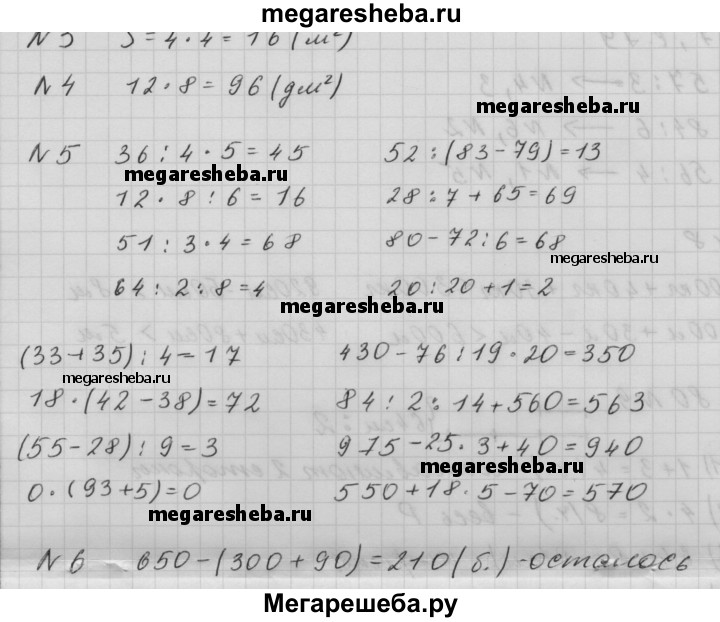 megaresheba.ru
N 3 S = 4 · 4 = 16 (м²)
N 4 12 · 8 = 96 (дм²)
megaresheba.ru
N 5 36 : 4 · 5 = 45 52 : (83 - 79) = 13
megaresheba.ru
12 · 8 : 6 = 16 28 : 7 + 65 = 69
51 : 3 · 4 = 68 80 - 72 : 6 = 68
megaresheba.ru
64 : 2 : 8 = 4 20 : 20 + 1 = 2
megaresheba.ru
(33 + 35) : 4 = 17 430 - 76 : 19 · 20 = 350
megaresheba.ru
18 · (42 - 38) = 72 84 : 2 : 14 + 560 = 563
(55 - 28) : 9 = 3 975 - 25 · 3 + 40 = 940
megaresheba.ru
0 · (93 + 5) = 0 550 + 18 · 5 - 70 = 570
megaresheba.ru
N 6 650 - (300 + 90) = 210 (б.) - осталось
Мегарешеба.ру